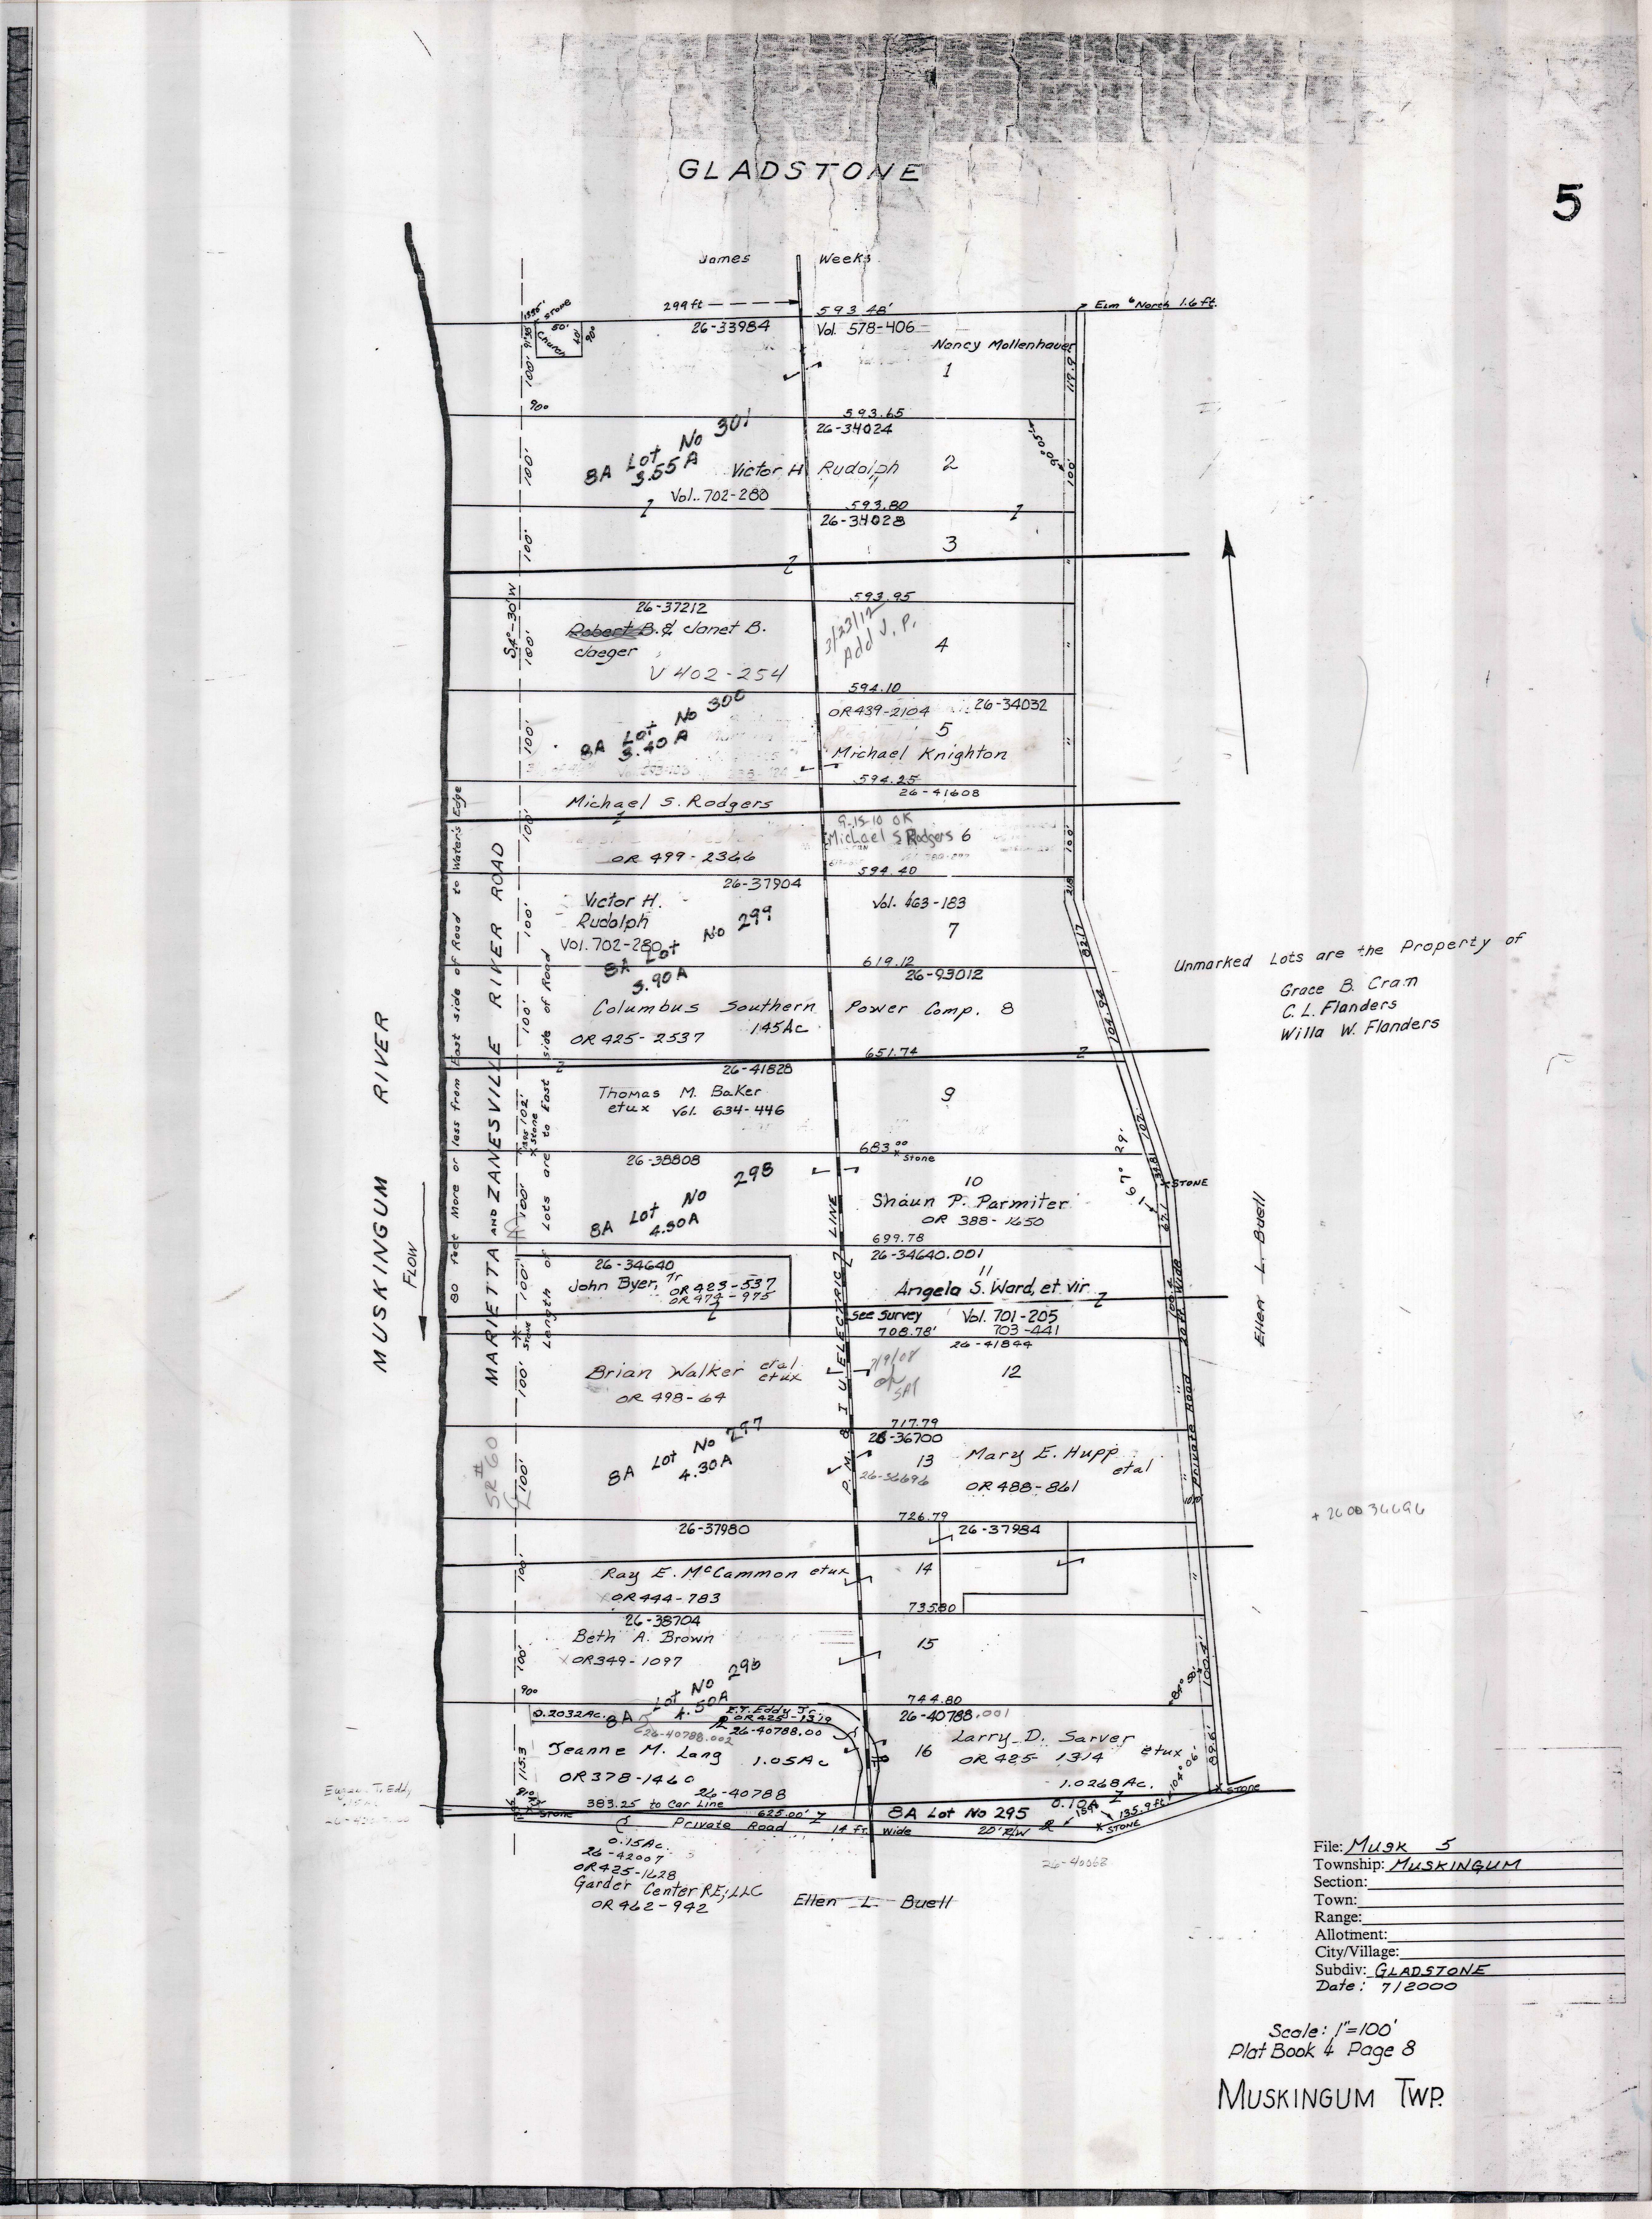 GLADSTONE
5
James Weeks
299 ft
593.48'
Elm 6" North 1.6 ft.
26-33984
Vol. 578-406
Stone
50'
40'
90°
Church
Nancy Mollenhauer
1
119.9
90°
593.65
26-34024
8A Lot No 301
3.55 A
Victor H Rudolph
2
100'
Vol. 702-280
593.80
26-34028
100'
3
593.95
S4°-30'W
100'
26-37212
Robert B. & Janet B.
Jaeger
V 402-254
3/23/12
Add J. P.
4
594.10
8A Lot No 300
3.40 A
OR 439-2104
26-34032
5
Michael Knighton
100'
594.25
26-41608
Michael S. Rodgers
9-15-10 OK
Michael S Rodgers 6
100'
OR 499-2366
594.40
26-37904
Victor H.
Rudolph
Vol. 702-280
8A Lot No 299
3.90A
Vol. 463-183
7
82.17
619.12
26-93012
Columbus Southern Power Comp. 8
1.45Ac
OR 425-2537
104.94
651.74
26-41828
Thomas M. Baker
etux Vol. 634-446
9
107.
683.00
Stone
26-38808
8A Lot No 298
4.30A
10
Shaun P. Parmiter
OR 388-1650
67° 29'
STONE
699.78
26-34640.001
26-34640
John Byer, Tr
OR 423-537
OR 474-975
11
Angela S. Ward, et vir
See Survey
Vol. 701-205
703-441
708.78'
26-41844
Brian Walker etal
etux
OR 498-64
12
717.79
26-36700
8A Lot No 297
4.30A
13
Mary E. Hupp
etal
26-36696
OR 488-861
726.79
26-37980
26-37984
Ray E. McCammon etux
OR 444-783
14
735.80
26-38704
Beth A. Brown
OR 349-1097
15
8A Lot No 296
4.50A
90°
744.80
0.2032Ac.
E.T. Eddy Jr.
OR 425-1319
26-40788.002
26-40788.00
26-40788.001
Jeanne M. Lang
1.05Ac
OR 378-1460
16
Larry D. Sarver
etux
OR 425-1314
1.0268Ac.
89.6'
104° 06'
STONE
115.3
26-40788
383.25 to Car Line
625.00'
8A Lot No 295
0.10A
135.9 ft
STONE
Private Road 14 ft. wide
20' R/W
0.15Ac.
26-42007
OR 425-1628
Garder Center RE, LLC
OR 462-942
Ellen L. Buell
26-40068
MUSKINGUM RIVER
FLOW
80 feet More or less from East side of Road to Water's Edge
MARIETTA AND ZANESVILLE RIVER ROAD
Length of Lots are to East side of Road
SR# 60
ELECTRIC LINE
20 ft Wide
Private Road
Ellen L. Buell
Unmarked Lots are the Property of
Grace B. Cram
C. L. Flanders
Willa W. Flanders
+ 260036696
File: Musk 5
Township: MUSKINGUM
Section:
Town:
Range:
Allotment:
City/Village:
Subdiv: GLADSTONE
Date: 7/2000
Scale: 1"=100'
Plat Book 4 Page 8
MUSKINGUM TWP.